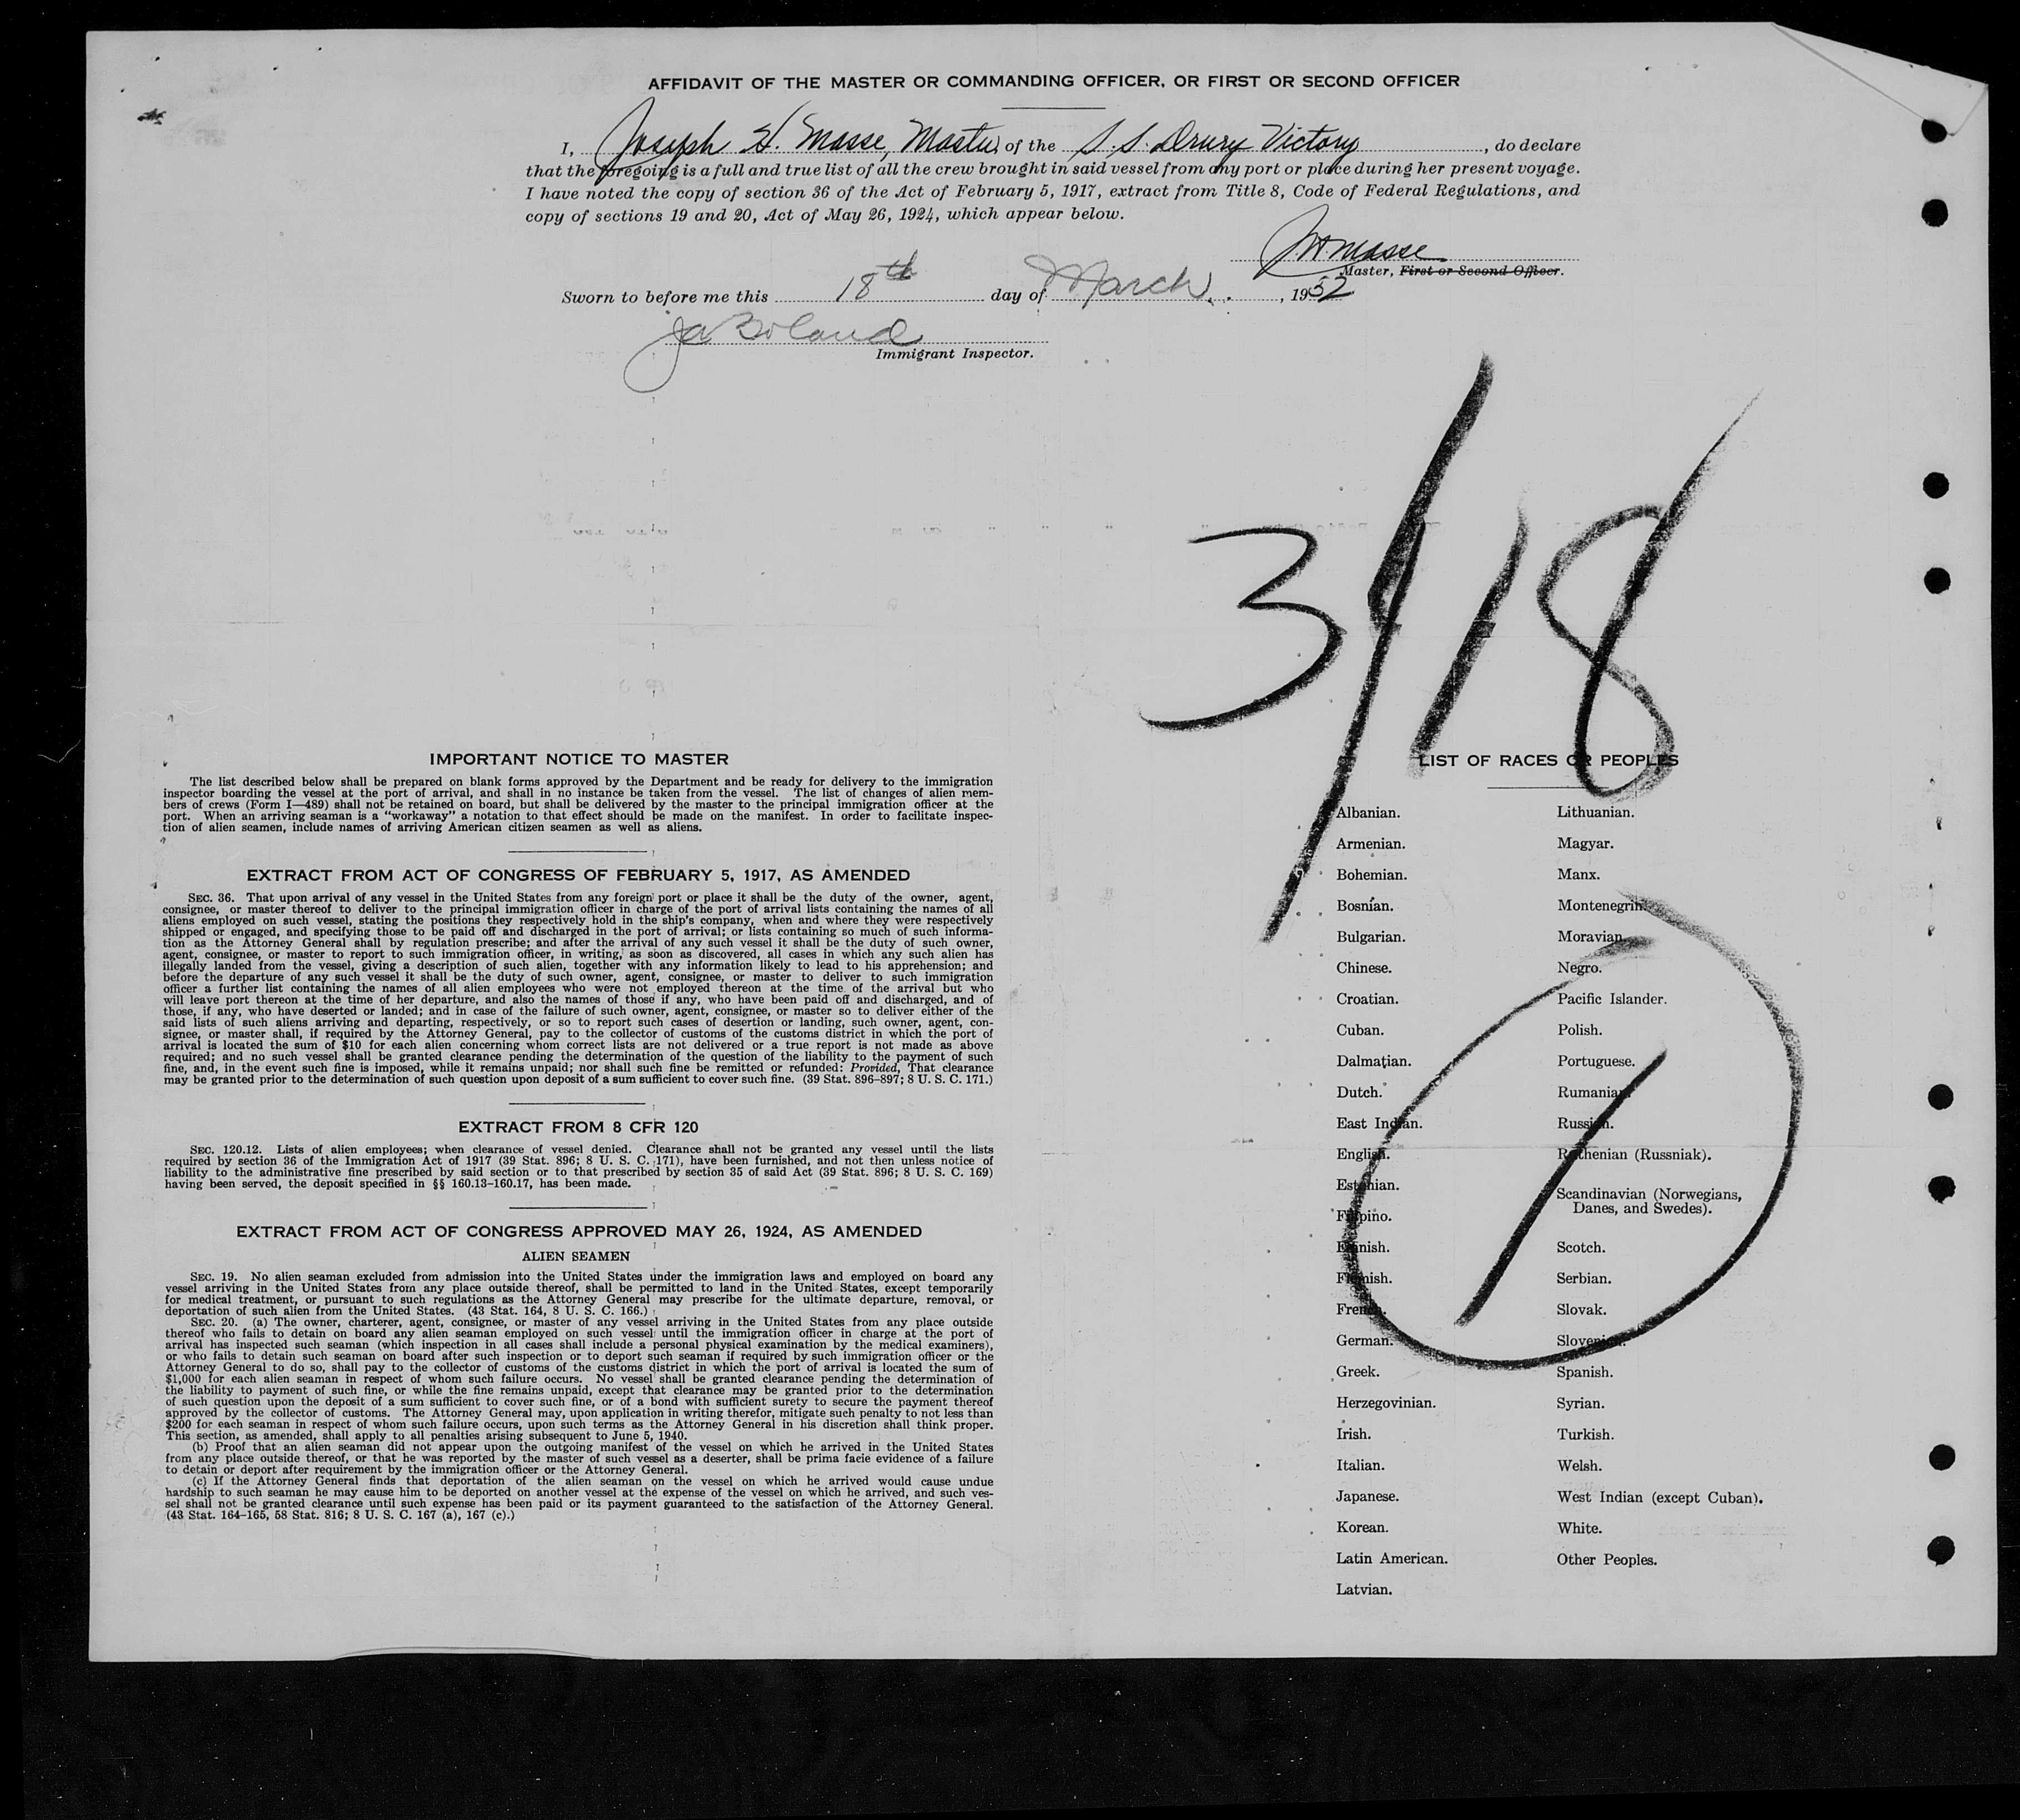 AFFIDAVIT OF THE MASTER OR COMMANDING OFFICER, OR FIRST OR SECOND OFFICER
I, Joseph H. Masse, Master, of the S.S. Drury Victory, do declare
that the foregoing is a full and true list of all the crew brought in said vessel from any port or place during her present voyage.
I have noted the copy of section 36 of the Act of February 5, 1917, extract from Title 8, Code of Federal Regulations, and
copy of sections 19 and 20, Act of May 26, 1924, which appear below.
J.H. Masse
Master, First or Second Officer.
Sworn to before me this 18th day of March, 1952
Ja Boland
Immigrant Inspector.
3/18/
IMPORTANT NOTICE TO MASTER
The list described below shall be prepared on blank forms approved by the Department and be ready for delivery to the immigration
inspector boarding the vessel at the port of arrival, and shall in no instance be taken from the vessel. The list of changes of alien mem-
bers of crews (Form I—489) shall not be retained on board, but shall be delivered by the master to the principal immigration officer at the
port. When an arriving seaman is a "workaway" a notation to that effect should be made on the manifest. In order to facilitate inspec-
tion of alien seamen, include names of arriving American citizen seamen as well as aliens.
EXTRACT FROM ACT OF CONGRESS OF FEBRUARY 5, 1917, AS AMENDED
SEC. 36. That upon arrival of any vessel in the United States from any foreign port or place it shall be the duty of the owner, agent,
consignee, or master thereof to deliver to the principal immigration officer in charge of the port of arrival lists containing the names of all
aliens employed on such vessel, stating the positions they respectively hold in the ship's company, when and where they were respectively
shipped or engaged, and specifying those to be paid off and discharged in the port of arrival; or lists containing so much of such informa-
tion as the Attorney General shall by regulation prescribe; and after the arrival of any such vessel it shall be the duty of such owner,
agent, consignee, or master to report to such immigration officer, in writing, as soon as discovered, all cases in which any such alien has
illegally landed from the vessel, giving a description of such alien, together with any information likely to lead to his apprehension; and
before the departure of any such vessel it shall be the duty of such owner, agent, consignee, or master to deliver to such immigration
officer a further list containing the names of all alien employees who were not employed thereon at the time of the arrival but who
will leave port thereon at the time of her departure, and also the names of those if any, who have been paid off and discharged, and of
those, if any, who have deserted or landed; and in case of the failure of such owner, agent, consignee, or master so to deliver either of the
said lists of such aliens arriving and departing, respectively, or so to report such cases of desertion or landing, such owner, agent, con-
signee, or master shall, if required by the Attorney General, pay to the collector of customs of the customs district in which the port of
arrival is located the sum of $10 for each alien concerning whom correct lists are not delivered or a true report is not made as above
required; and no such vessel shall be granted clearance pending the determination of the question of the liability to the payment of such
fine, and, in the event such fine is imposed, while it remains unpaid; nor shall such fine be remitted or refunded: Provided, That clearance
may be granted prior to the determination of such question upon deposit of a sum sufficient to cover such fine. (39 Stat. 896-897; 8 U. S. C. 171.)
EXTRACT FROM 8 CFR 120
SEC. 120.12. Lists of alien employees; when clearance of vessel denied. Clearance shall not be granted any vessel until the lists
required by section 36 of the Immigration Act of 1917 (39 Stat. 896; 8 U. S. C. 171), have been furnished, and not then unless notice of
liability to the administrative fine prescribed by said section or to that prescribed by section 35 of said Act (39 Stat. 896; 8 U. S. C. 169)
having been served, the deposit specified in §§ 160.13-160.17, has been made.
EXTRACT FROM ACT OF CONGRESS APPROVED MAY 26, 1924, AS AMENDED
ALIEN SEAMEN
SEC. 19. No alien seaman excluded from admission into the United States under the immigration laws and employed on board any
vessel arriving in the United States from any place outside thereof, shall be permitted to land in the United States, except temporarily
for medical treatment, or pursuant to such regulations as the Attorney General may prescribe for the ultimate departure, removal, or
deportation of such alien from the United States. (43 Stat. 164, 8 U. S. C. 166.)
SEC. 20. (a) The owner, charterer, agent, consignee, or master of any vessel arriving in the United States from any place outside
thereof who fails to detain on board any alien seaman employed on such vessel until the immigration officer in charge at the port of
arrival has inspected such seaman (which inspection in all cases shall include a personal physical examination by the medical examiners),
or who fails to detain such seaman on board after such inspection or to deport such seaman if required by such immigration officer or the
Attorney General to do so, shall pay to the collector of customs of the customs district in which the port of arrival is located the sum of
$1,000 for each alien seaman in respect of whom such failure occurs. No vessel shall be granted clearance pending the determination of
the liability to payment of such fine, or while the fine remains unpaid, except that clearance may be granted prior to the determination
of such question upon the deposit of a sum sufficient to cover such fine, or of a bond with sufficient surety to secure the payment thereof
approved by the collector of customs. The Attorney General may, upon application in writing therefor, mitigate such penalty to not less than
$200 for each seaman in respect of whom such failure occurs, upon such terms as the Attorney General in his discretion shall think proper.
This section, as amended, shall apply to all penalties arising subsequent to June 5, 1940.
(b) Proof that an alien seaman did not appear upon the outgoing manifest of the vessel on which he arrived in the United States
from any place outside thereof, or that he was reported by the master of such vessel as a deserter, shall be prima facie evidence of a failure
to detain or deport after requirement by the immigration officer or the Attorney General.
(c) If the Attorney General finds that deportation of the alien seaman on the vessel on which he arrived would cause undue
hardship to such seaman he may cause him to be deported on another vessel at the expense of the vessel on which he arrived, and such ves-
sel shall not be granted clearance until such expense has been paid or its payment guaranteed to the satisfaction of the Attorney General.
(43 Stat. 164-165, 58 Stat. 816; 8 U. S. C. 167 (a), 167 (c).)
LIST OF RACES OR PEOPLES
Albanian.
Armenian.
Bohemian.
Bosnian.
Bulgarian.
Chinese.
Croatian.
Cuban.
Dalmatian.
Dutch.
East Indian.
English.
Estonian.
Filipino.
Finnish.
Flemish.
French.
German.
Greek.
Herzegovinian.
Irish.
Italian.
Japanese.
Korean.
Latin American.
Latvian.
Lithuanian.
Magyar.
Manx.
Montenegrin.
Moravian.
Negro.
Pacific Islander.
Polish.
Portuguese.
Rumanian.
Russian.
Ruthenian (Russniak).
Scandinavian (Norwegians,
Danes, and Swedes).
Scotch.
Serbian.
Slovak.
Slovenian.
Spanish.
Syrian.
Turkish.
Welsh.
West Indian (except Cuban).
White.
Other Peoples.
1